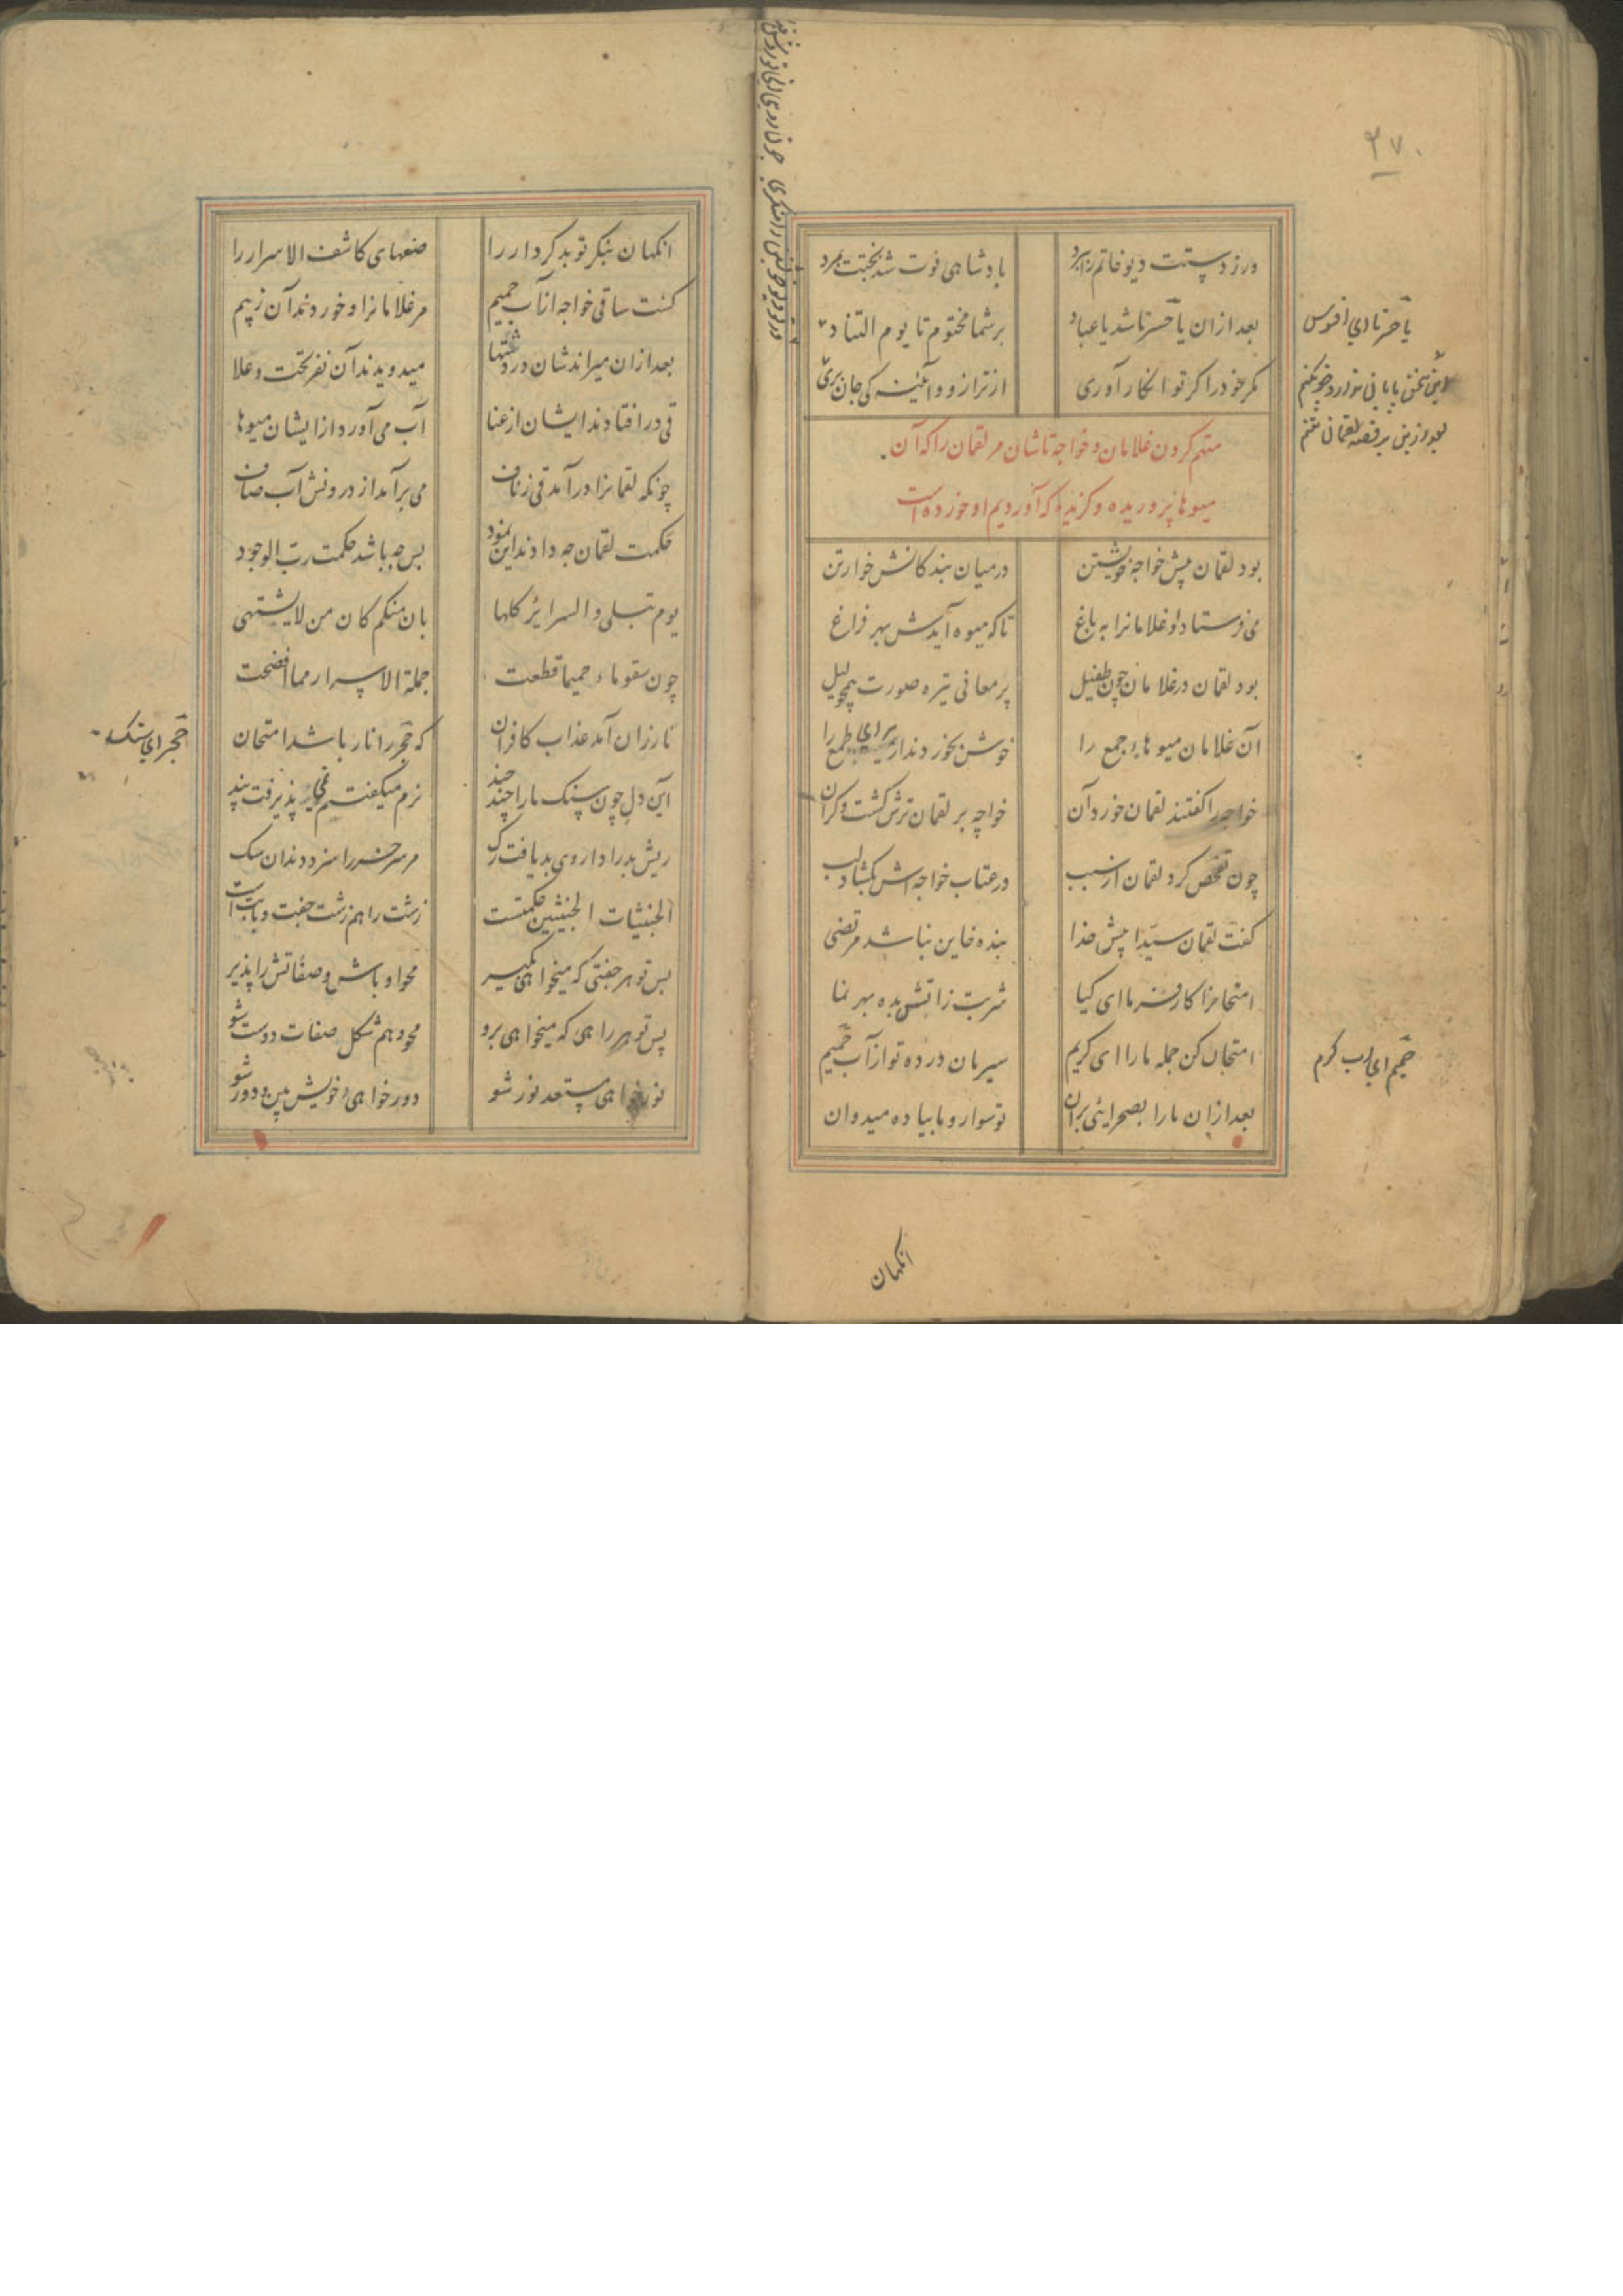 ۳۷۰
ورز دستت دیو خاتم را ببرد
بادشاهی فوت شد بختت بمرد
بعد ازان یا حسرتا شد یا عباد
بر شما مختوم تا یوم التناد
مکر خود را کر تو انکار آوری
از ترازو و آئینه کی جان بری
یا حسرتا ای افسوس
متهم کردن غلامان و خواجه تاشان مر لقمان را که آن
میوها پروریده و کزیده که آوردیم او خورده است
بود لقمان پیش خواجه خویشتن
درمیان بندکانش خوارتن
می فرستاد او غلامانرا به باغ
تا که میوه آیدش بهر فراغ
بود لقمان در غلامان چون طفیل
پر معانی تیره صورت همچو لیل
آن غلامان میوهاء جمع را
خوش بخوردند از برای طمع را
خواجه را کفتند لقمان خورد آن
خواجه بر لقمان ترش کشت و کران
چون تفحص کرد لقمان از سبب
در عتاب خواجه اش بکشاد لب
کفت لقمان سیدا پیش خدا
بنده خاین نباشد مرتضی
امتحانرا کار فرما ای کیا
شربت زاتش بده بهر نما
امتحان کن جمله مارا ای کریم
سیرمان در ده تو از آب حمیم
حمیم ای آب کرم
بعد ازان مارا بصحرائی بران
تو سوار و ما پیاده میدوان
انکهان
انکهان بنکر تو بد کردار را
صنعهای کاشف الاسرار را
کشت ساقی خواجه از آب حمیم
مر غلامانرا و خوردند آن ز بیم
بعد ازان میراندشان در دشتها
میدویدند آن نفر تحت و علا
قی در افتادند ایشان از عنا
آب می آورد ازایشان میوها
چونکه لقمانرا در آمد قی ز ناف
می برآمد از درونش آب صاف
حکمت لقمان چه داند این نمود
بس چه باشد حکمت رب الوجود
یوم تبلی والسرایر کلها
بان منکم کان من لا یشتهی
چون سقوا ماء حمیما قطعت
جملة الاسرار مما افضحت
نار زان آمد عذاب کافران
که حجر را نار باشد امتحان
حجر ای سنک
این دل چون سنک مارا چند چند
نرم میکفتیم نمی پذیرفت پند
ریش بد را داروی بد یافت رک
مر سر خر را سزد دندان سک
الخبیثات الخبیثین حکمتست
زشت را هم زشت جفت و بابتست
بس تو هر جفتی که میخواهی بکیر
محو او باش و صفاتش را پذیر
پس تو هر راهی که میخواهی برو
محو و هم شکل صفات دوست شو
نور خواهی مستعد نور شو
دور خواهی خویش بین و دور شو